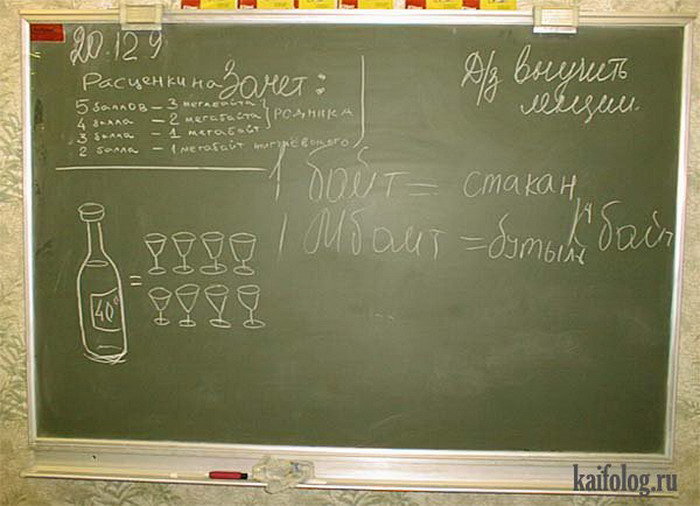 20.12 9
Расценки на Зачет:
5 баллов – 3 мегабайта
4 балла – 2 мегабайта } РОДНИКИ
3 балла – 1 мегабайт
2 балла – 1 мегабайт
Д/з выучить
лекции.
1 байт = стакан
1 Мбайт = бутыл
байт
40°
=
kaifolog.ru